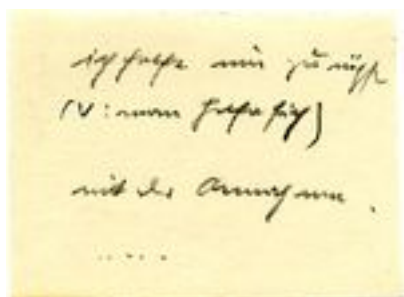 ich helfe mir zunächst
(V: man helfe sich)
mit der Annahme.
....